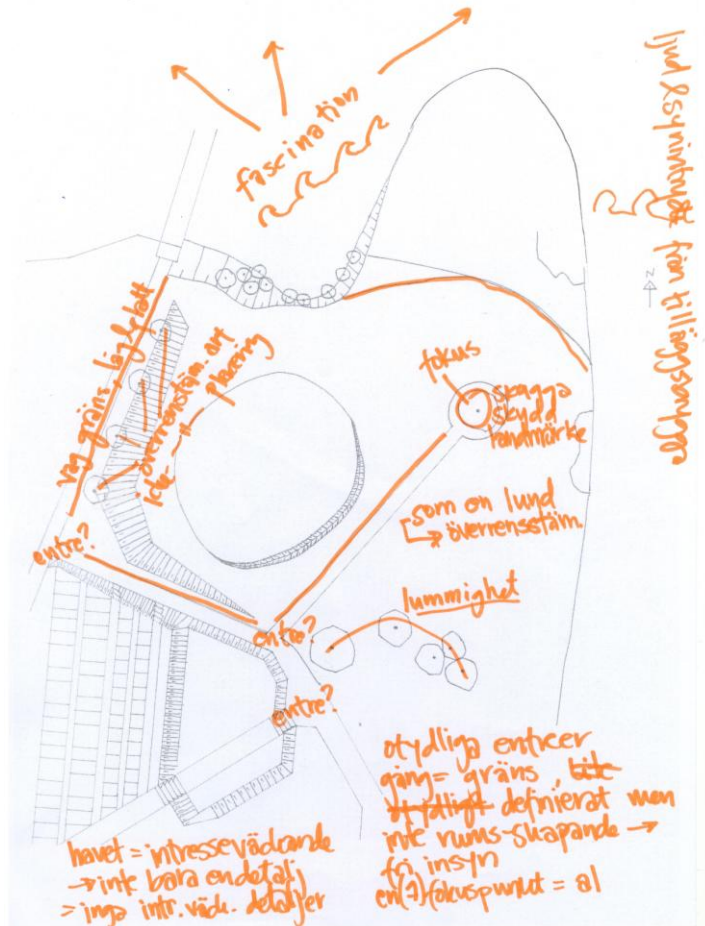 fascination
ljud & synintryck från tilläggsomygga
N
väg gräns, låg betatt
överrensstäm. art
Icke- –"– placering
fokus
skugga
skydd
landmärke
som en lund
överrensstäm.
lummighet
entre?
entre?
entre?
otydliga entreer
gång = gräns, lite
otydligt definierat men
inte rums-skapande →
fri insyn
en(1) fokuspunkt = al
havet = intresseväckande
→ inte bara en detalj
> inga intr.väck. detaljer